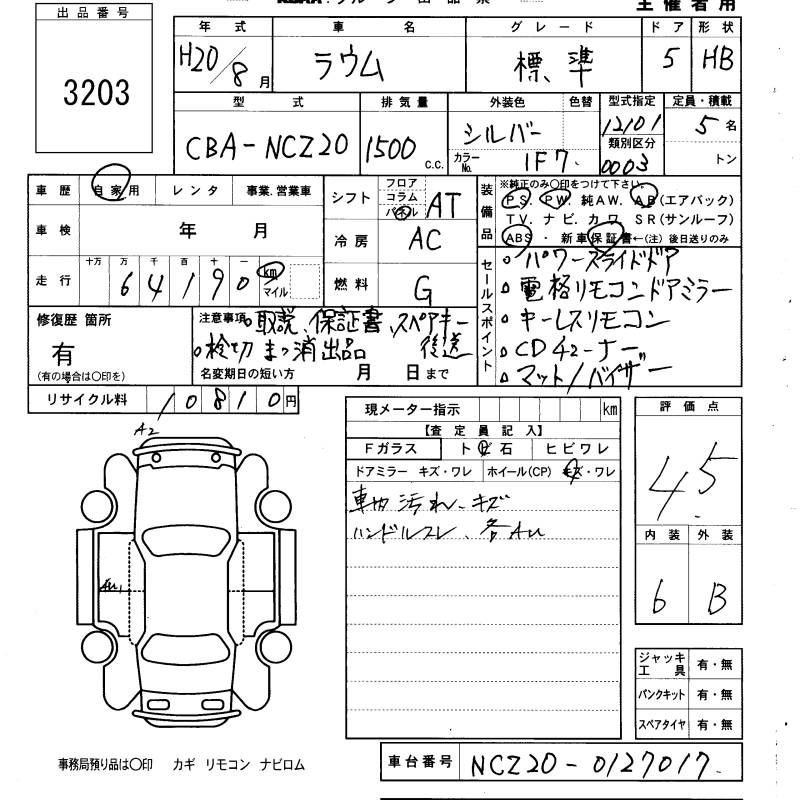 出品番号
3203
主催者用
年式 車名 グレード ドア 形状
H20/8月 ラウム 標準 5 HB
型式 排気量 外装色 色替 型式指定 定員・積載
CBA-NCZ20 1500 c.c. シルバー 12101 5名
カラーNo. 1F7. 類別区分 0003 トン
車歴 自家用 レンタ 事業.営業車
車検 年 月
走行 十万 万 千 百 十 一
64190 km マイル
シフト フロア コラム パネル AT
冷房 AC
燃料 G
装備品
※純正のみ○印をつけて下さい。
PS. PW. 純AW. AB(エアバック)
TV. ナビ. カワ SR(サンルーフ)
ABS・新車保証書←(注)後日送りのみ
セールスポイント
パワースライドドア
電格リモコンドアミラー
キーレスリモコン
CDチューナー
マット/バイザー
修復歴 箇所
有
(有の場合は○印を)
注意事項 取説、保証書、スペアキー
後送
名変期日の短い方 月 日まで
リサイクル料 10810円
現メーター指示 km
【査定員記入】
Fガラス トビ石 ヒビワレ
ドアミラー キズ・ワレ ホイール(CP) キズ・ワレ
車内汚れ、キズ
ハンドルスレ、各AU
評価点
4.5
内装 外装
6 B
A2
AU1
ジャッキ工具 有・無
パンクキット 有・無
スペアタイヤ 有・無
事務局預り品は○印 カギ リモコン ナビロム
車台番号 NCZ20-0127017.